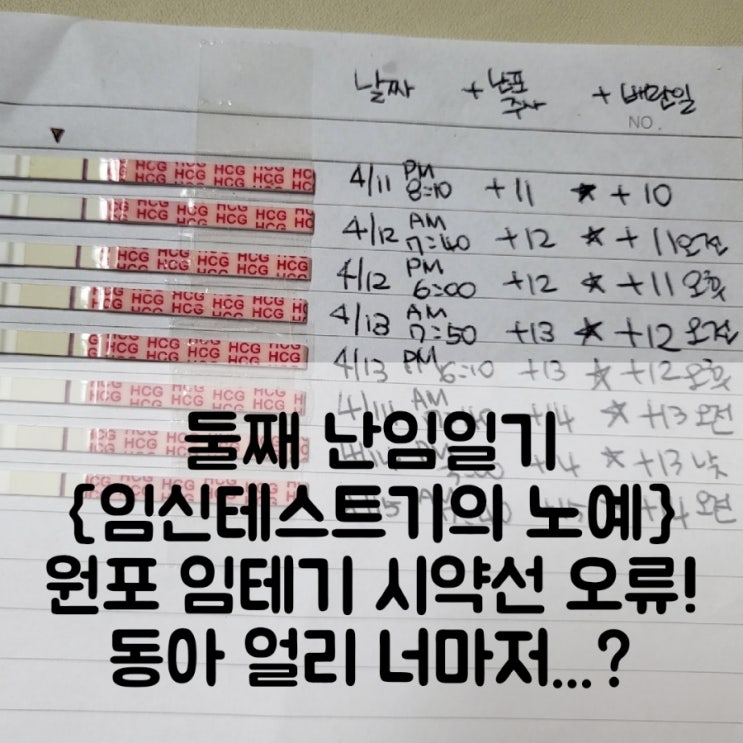 날짜 + 난포주사 + 배란일
NO.
HCG HCG HCG HCG
4/11 PM 8:10 +11 ★ +10
HCG HCG HCG HCG
4/12 AM 7:40 +12 ★ +11 오전
HCG HCG HCG HCG
4/12 PM 6:00 +12 ★ +11 오후
HCG HCG HCG HCG
4/13 AM 7:50 +13 ★ +12 오전
HCG HCG HCG HCG
4/13 PM 6:10 +13 ★ +12 오후
HCG HCG HCG HCG
AM +14 ★ +13 오전
HCG HCG HCG
+14 ★ +13 낮
HCG HCG HCG
오전
둘째 난임일기
{임신테스트기의 노예}
원포 임테기 시약선 오류!
동아 얼리 너마저...?